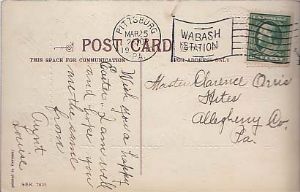 PITTSBURG
MAR 25
PA.
WABASH
STATION
POST CARD
THIS SPACE FOR COMMUNICATION
FOR ADDRESS ONLY
Wish you a happy
Easter. I am well
and hope you
are the same
from
Aunt
Louise
Master Clarence Orris
Hites
Allegheny Co.
Pa.